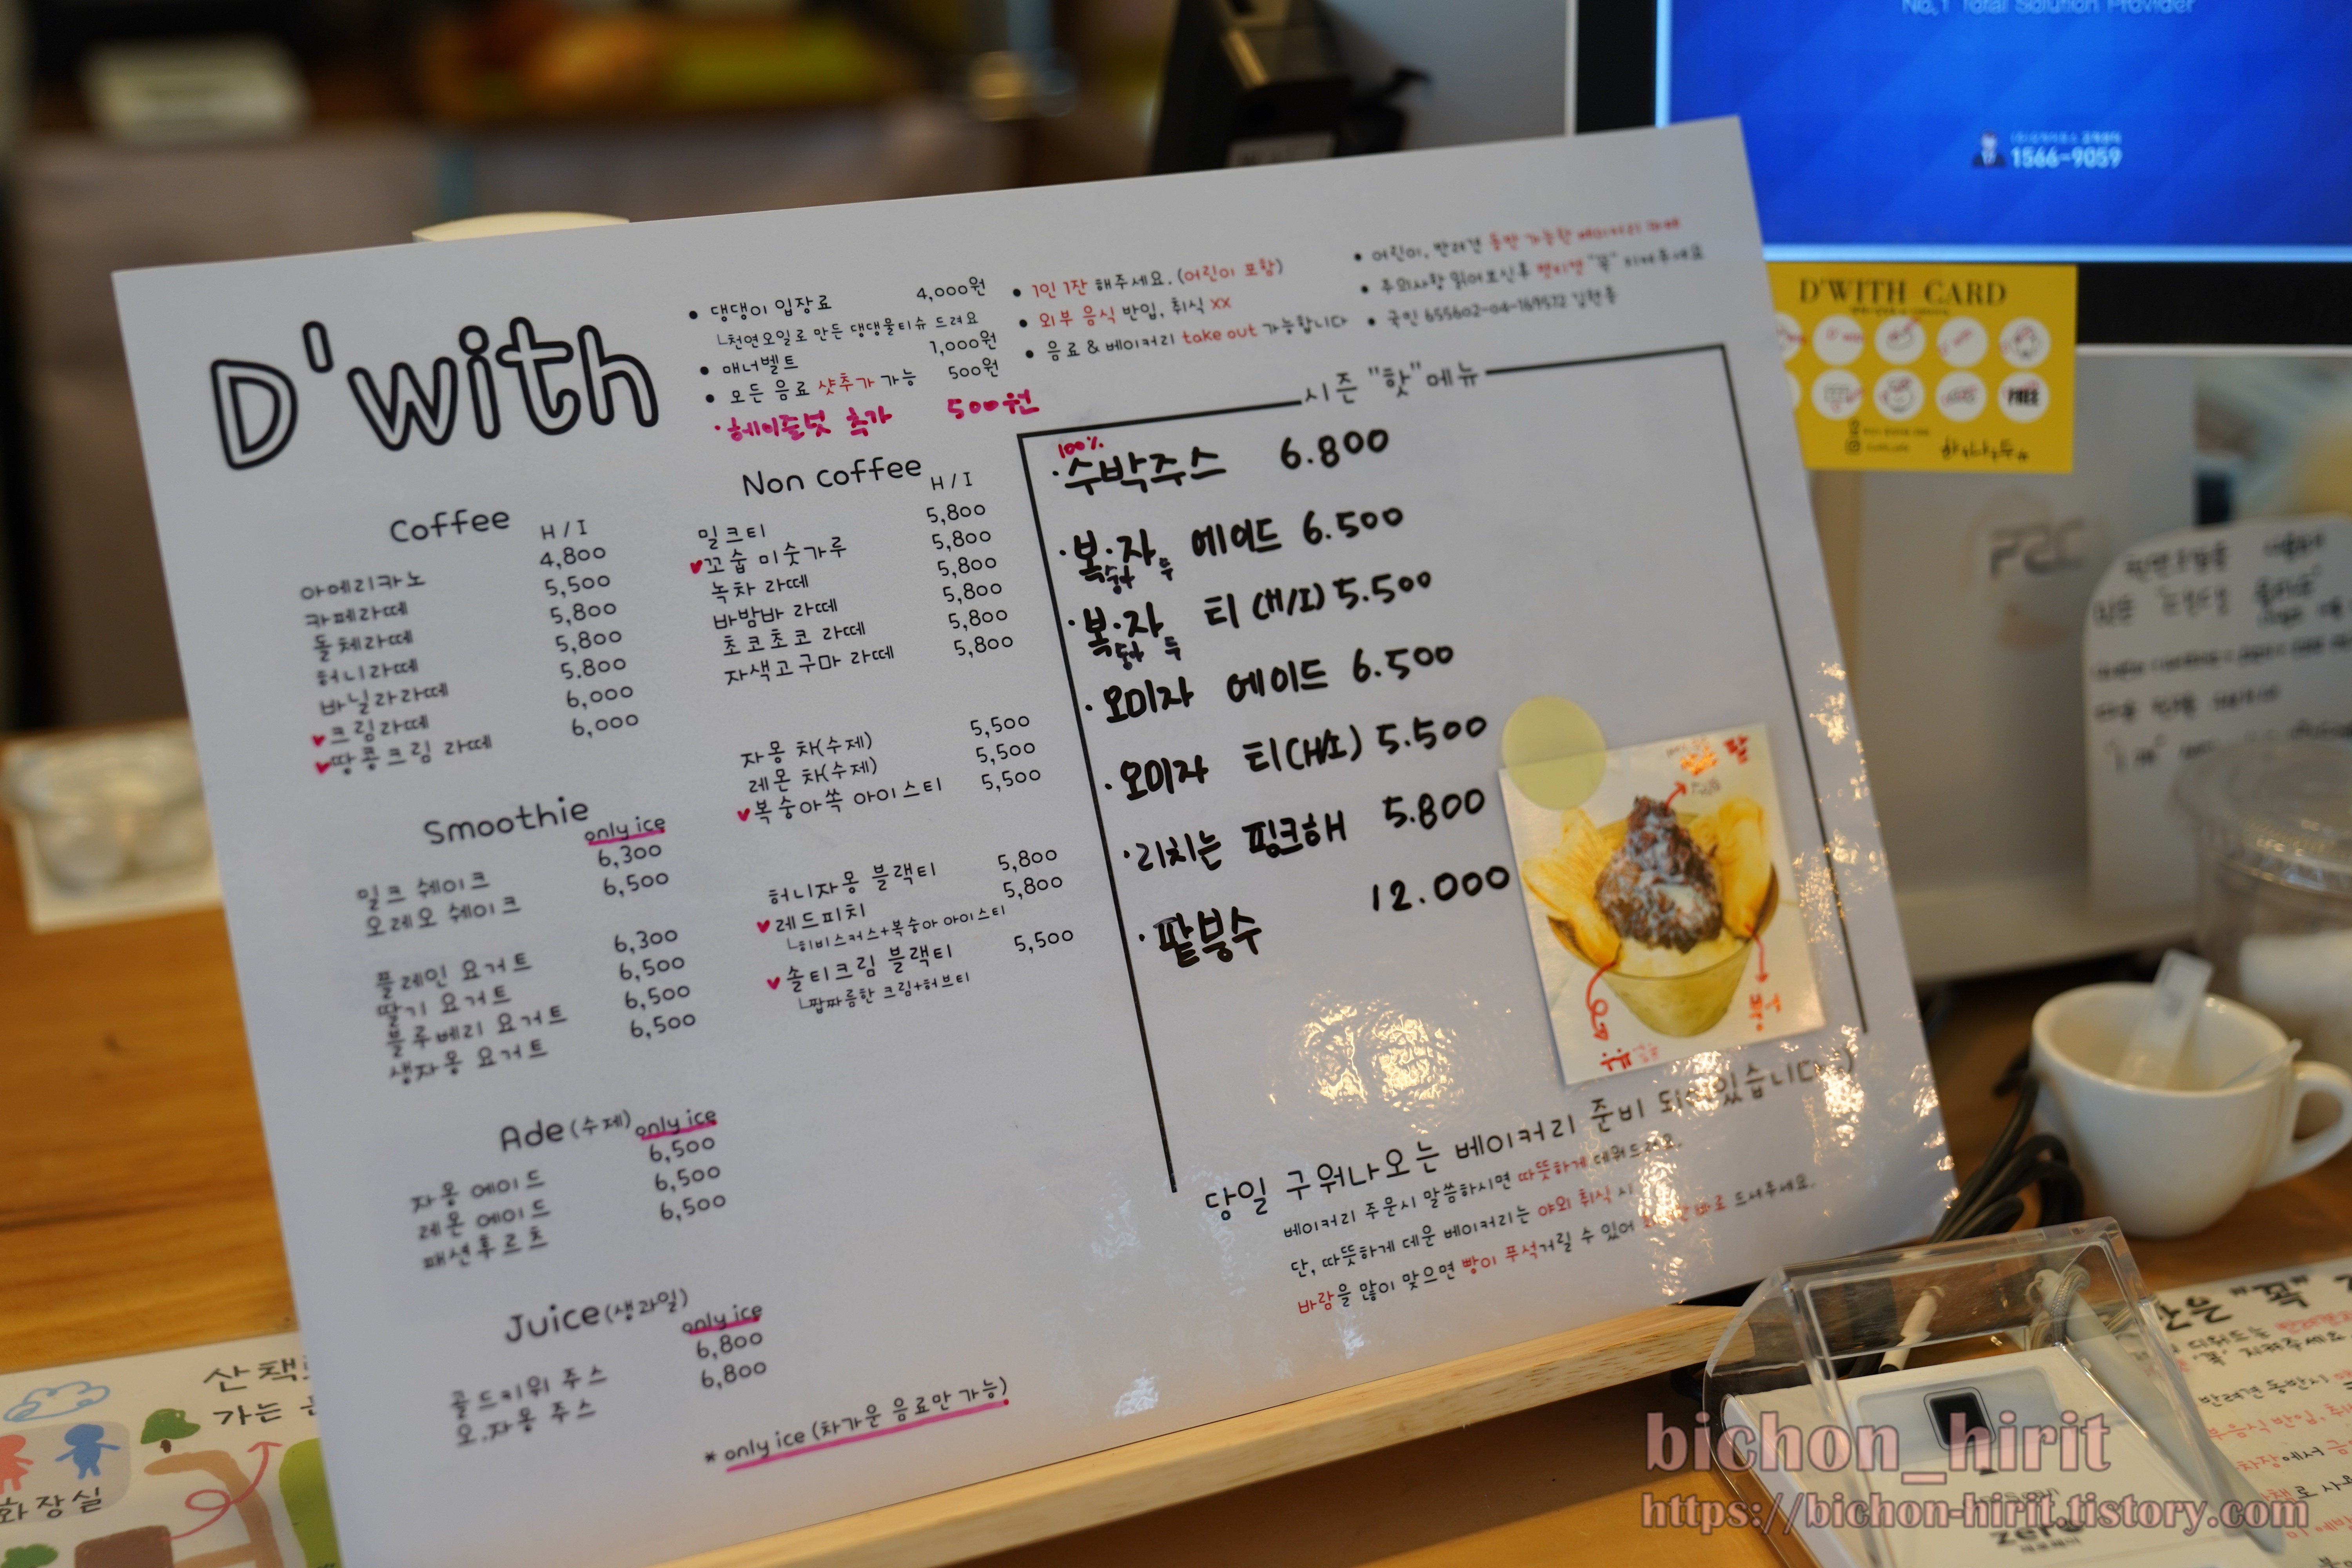 No.1 Total Solution Provider
1566-9059
D'with
• 댕댕이 입장료 4,000원
└천연오일로 만든 댕댕물티슈 드려요
• 매너벨트 1,000원
• 모든 음료 샷추가 가능 500원
· 헤이즐넛 추가 500원
• 1인 1잔 해주세요. (어린이 포함)
• 외부 음식 반입, 취식 xx
• 음료 & 베이커리 take out 가능합니다
• 어린이, 반려견 동반 가능한 베이커리 카페
• 주의사항 읽어보신후 펫티켓 "꼭" 지켜주세요
• 국민 655602-04-169572
D'WITH CARD
FREE
Coffee H / I
아메리카노 4,800
카페라떼 5,500
돌체라떼 5,800
허니라떼 5,800
바닐라라떼 5.800
♥크림라떼 6,000
♥땅콩크림 라떼 6,000
Smoothie only ice
밀크 쉐이크 6,300
오레오 쉐이크 6,500
플레인 요거트 6,300
딸기 요거트 6,500
블루베리 요거트 6,500
생자몽 요거트 6,500
Ade(수제) only ice
자몽 에이드 6,500
레몬 에이드 6,500
패션후르츠 6,500
Juice(생과일) only ice
골드키위 주스 6,800
오.자몽 주스 6,800
* only ice (차가운 음료만 가능)
Non coffee H / I
밀크티 5,800
♥꼬숩 미숫가루 5,800
녹차 라떼 5,800
바밤바 라떼 5,800
초코초코 라떼 5,800
자색고구마 라떼 5,800
자몽 차(수제) 5,500
레몬 차(수제) 5,500
♥복숭아쏙 아이스티 5,500
허니자몽 블랙티 5,800
♥레드피치 5,800
└히비스커스+복숭아 아이스티
♥솔티크림 블랙티 5,500
└짭짜름한 크림+허브티
시즌 "핫"메뉴
100%
· 수박주스 6.800
· 복·자 에이드 6.500
숭아 두
· 복·자 티 (H/I) 5.500
숭아 두
· 오미자 에이드 6.500
· 오미자 티(H/I) 5.500
· 리치는 핑크해 5.800
· 팥빙수 12.000
팥
우유
당일 구워나오는 베이커리 준비 되어있습니다
베이커리 주문시 말씀하시면 따뜻하게 데워드려요.
단, 따뜻하게 데운 베이커리는 야외 취식 시
바람을 많이 맞으면 빵이 푸석거릴 수 있어 바로 드셔주세요.
산책
가는
화장실
bichon_hirit
https://bichon-hirit.tistory.com